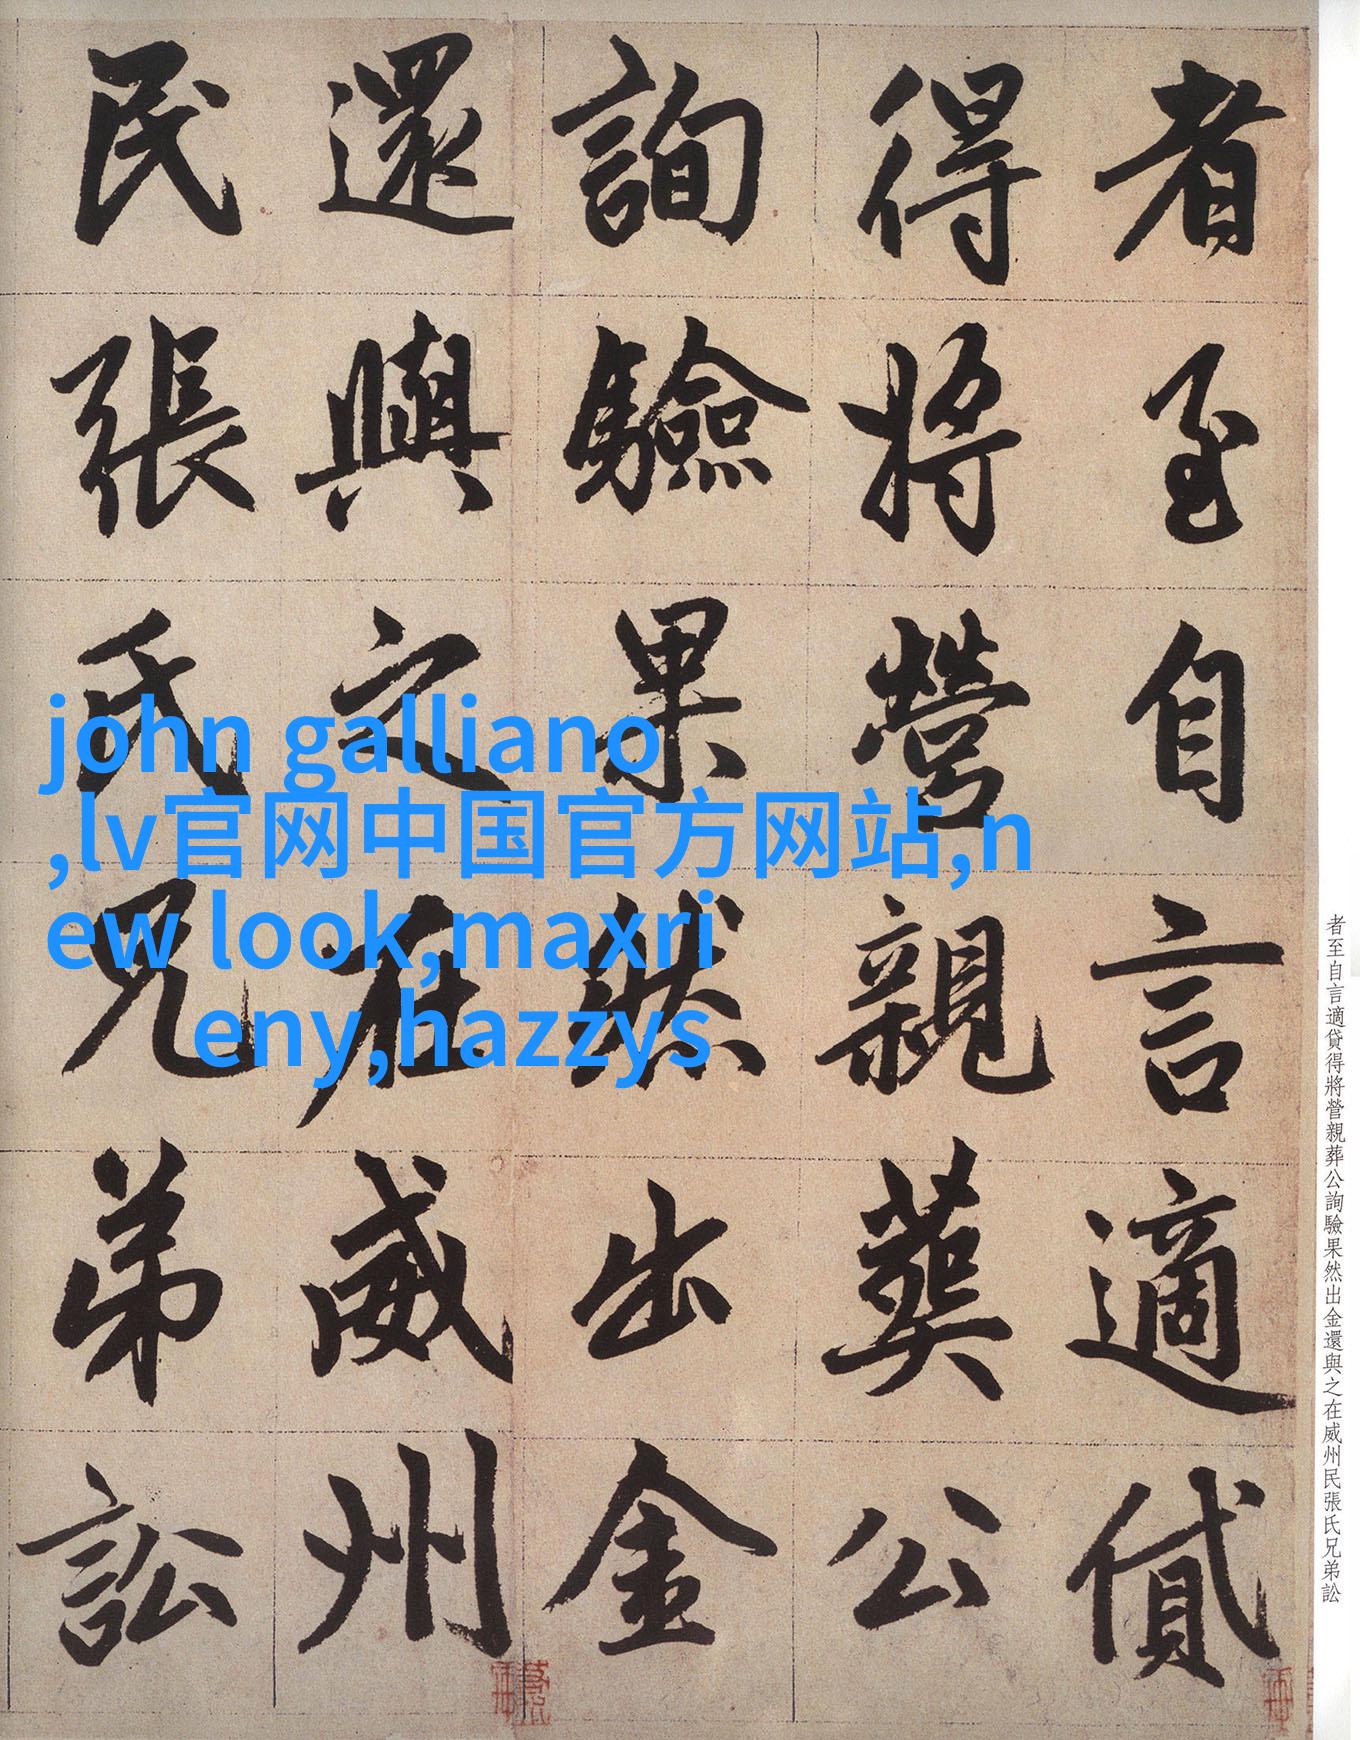 者至自言適貸得將營親葬公詢驗果然出金還與之在威州民張氏兄弟訟
者至自言適貸
得將營親葬公
詢驗果然出金
還與之在威州
民張氏兄弟訟
john galliano
,lv官网中国官方网站,n
ew look,maxri
eny,hazzys